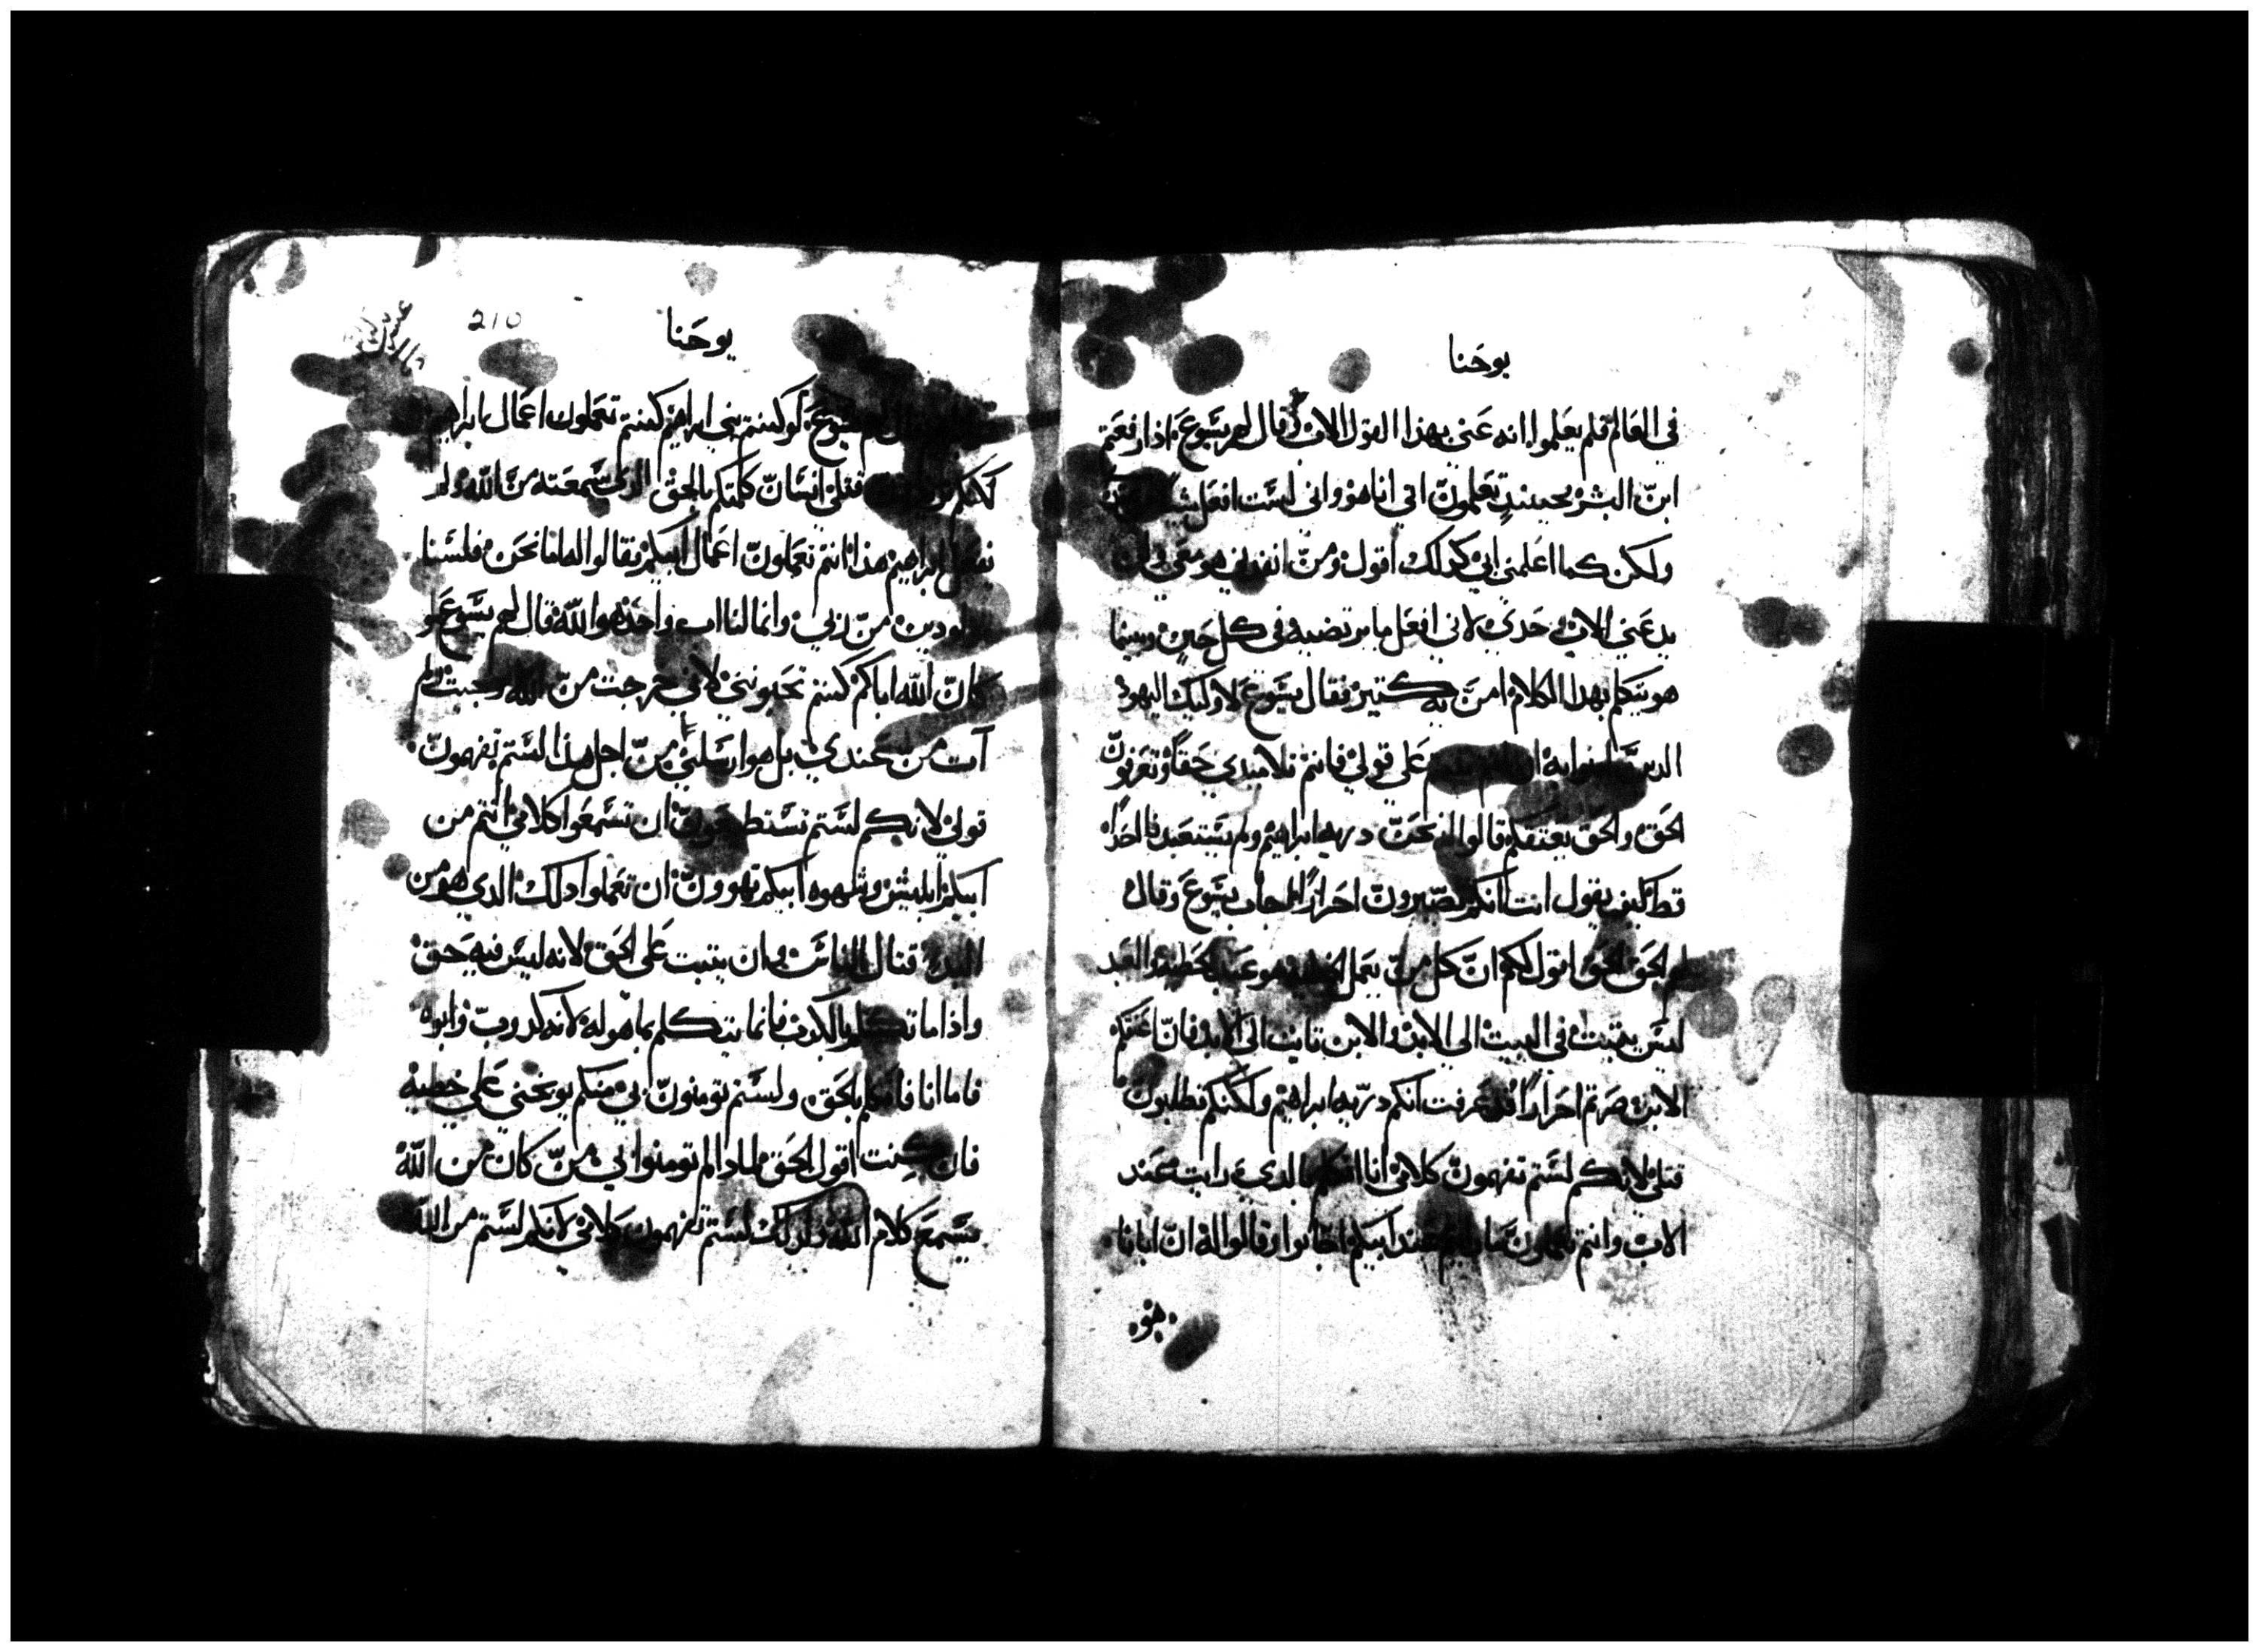 يوحنا
في العالم فلم يعلموا انه عني بهذا القول الاب قال لهم يسوع اذا رفعتم
ابن البشر حينيد تعلمون اني انا هو واني لست افعل شيا
ولكن كما اعلمني ابي كدلك اقول ومن انفدني هو معي ولن
يدعني الاب وحدي لاني افعل ما يرتضيه في كل حين وبينما
هو يتكلم بهدا الكلام امن به كتير فقال يسوع لاوليك اليهود
الدين امنوا به على قولي فانتم تلاميدي حقا وتعرفون
الحق والحق يعتقكم قالوا له نحن درية ابراهيم ولم يستعبدنا احدا
قط كيف يقول انت انكم تصيرون احرارا اجاب يسوع وقال
لهم الحق الحق اقول لكم ان كل من يعمل الخطية هو عبد الخطية والعبد
ليس يتبت في البيت الى الابد والابن تابت الى الابد فان اعتقكم
الابن صرتم احرارا قد عرفت انكم درية ابراهيم ولكنكم تطلبون
قتلي لانكم لستم تفهمون كلامي انا اتكلم بالدي رايت عند
الاب وانتم تعملون ما رايتم عند ابيكم اجابوا وقالوا له ان ابانا
هو
210
يوحنا
يسوع لو كنتم بني ابراهيم كنتم تعملون اعمال ابراهيم
لكنكم قتلي انسان كلمتكم بالحق الدي سمعته من الله ولم
يفعل ابراهيم هذا انتم تعملون اعمال ابيكم فقالوا له اما نحن فلسنا
مولودين من زنى وانما لنا اب واحد هو الله قال لهم يسوع لو
كان الله اباكم كنتم تحبونني لاني خرجت من الله وجيت ولم
آت من عندي بل هو ارسلني من اجل هذا لستم تفهمون
قولي لانكم لستم تستطيعون ان تسمعوا كلامي انتم من
ابيكم ابليس وشهوه ابيكم تهوون ان تعملوا دلك الدي هو من
البدء قتال الناس ولن يتبت على الحق لانه ليس فيه حق
واذا ما تكلم بالكدب فانما يتكلم بما هو له لانه كدوب وابوه
فاما انا فاتكلم بالحق ولستم تومنون بي من منكم يوبخني على خطيه
فان كنت اقول الحق لمادا لم تومنوا بي من كان من الله
يسمع كلام الله ولدلك لستم تفهمون كلامي لانكم لستم من الله